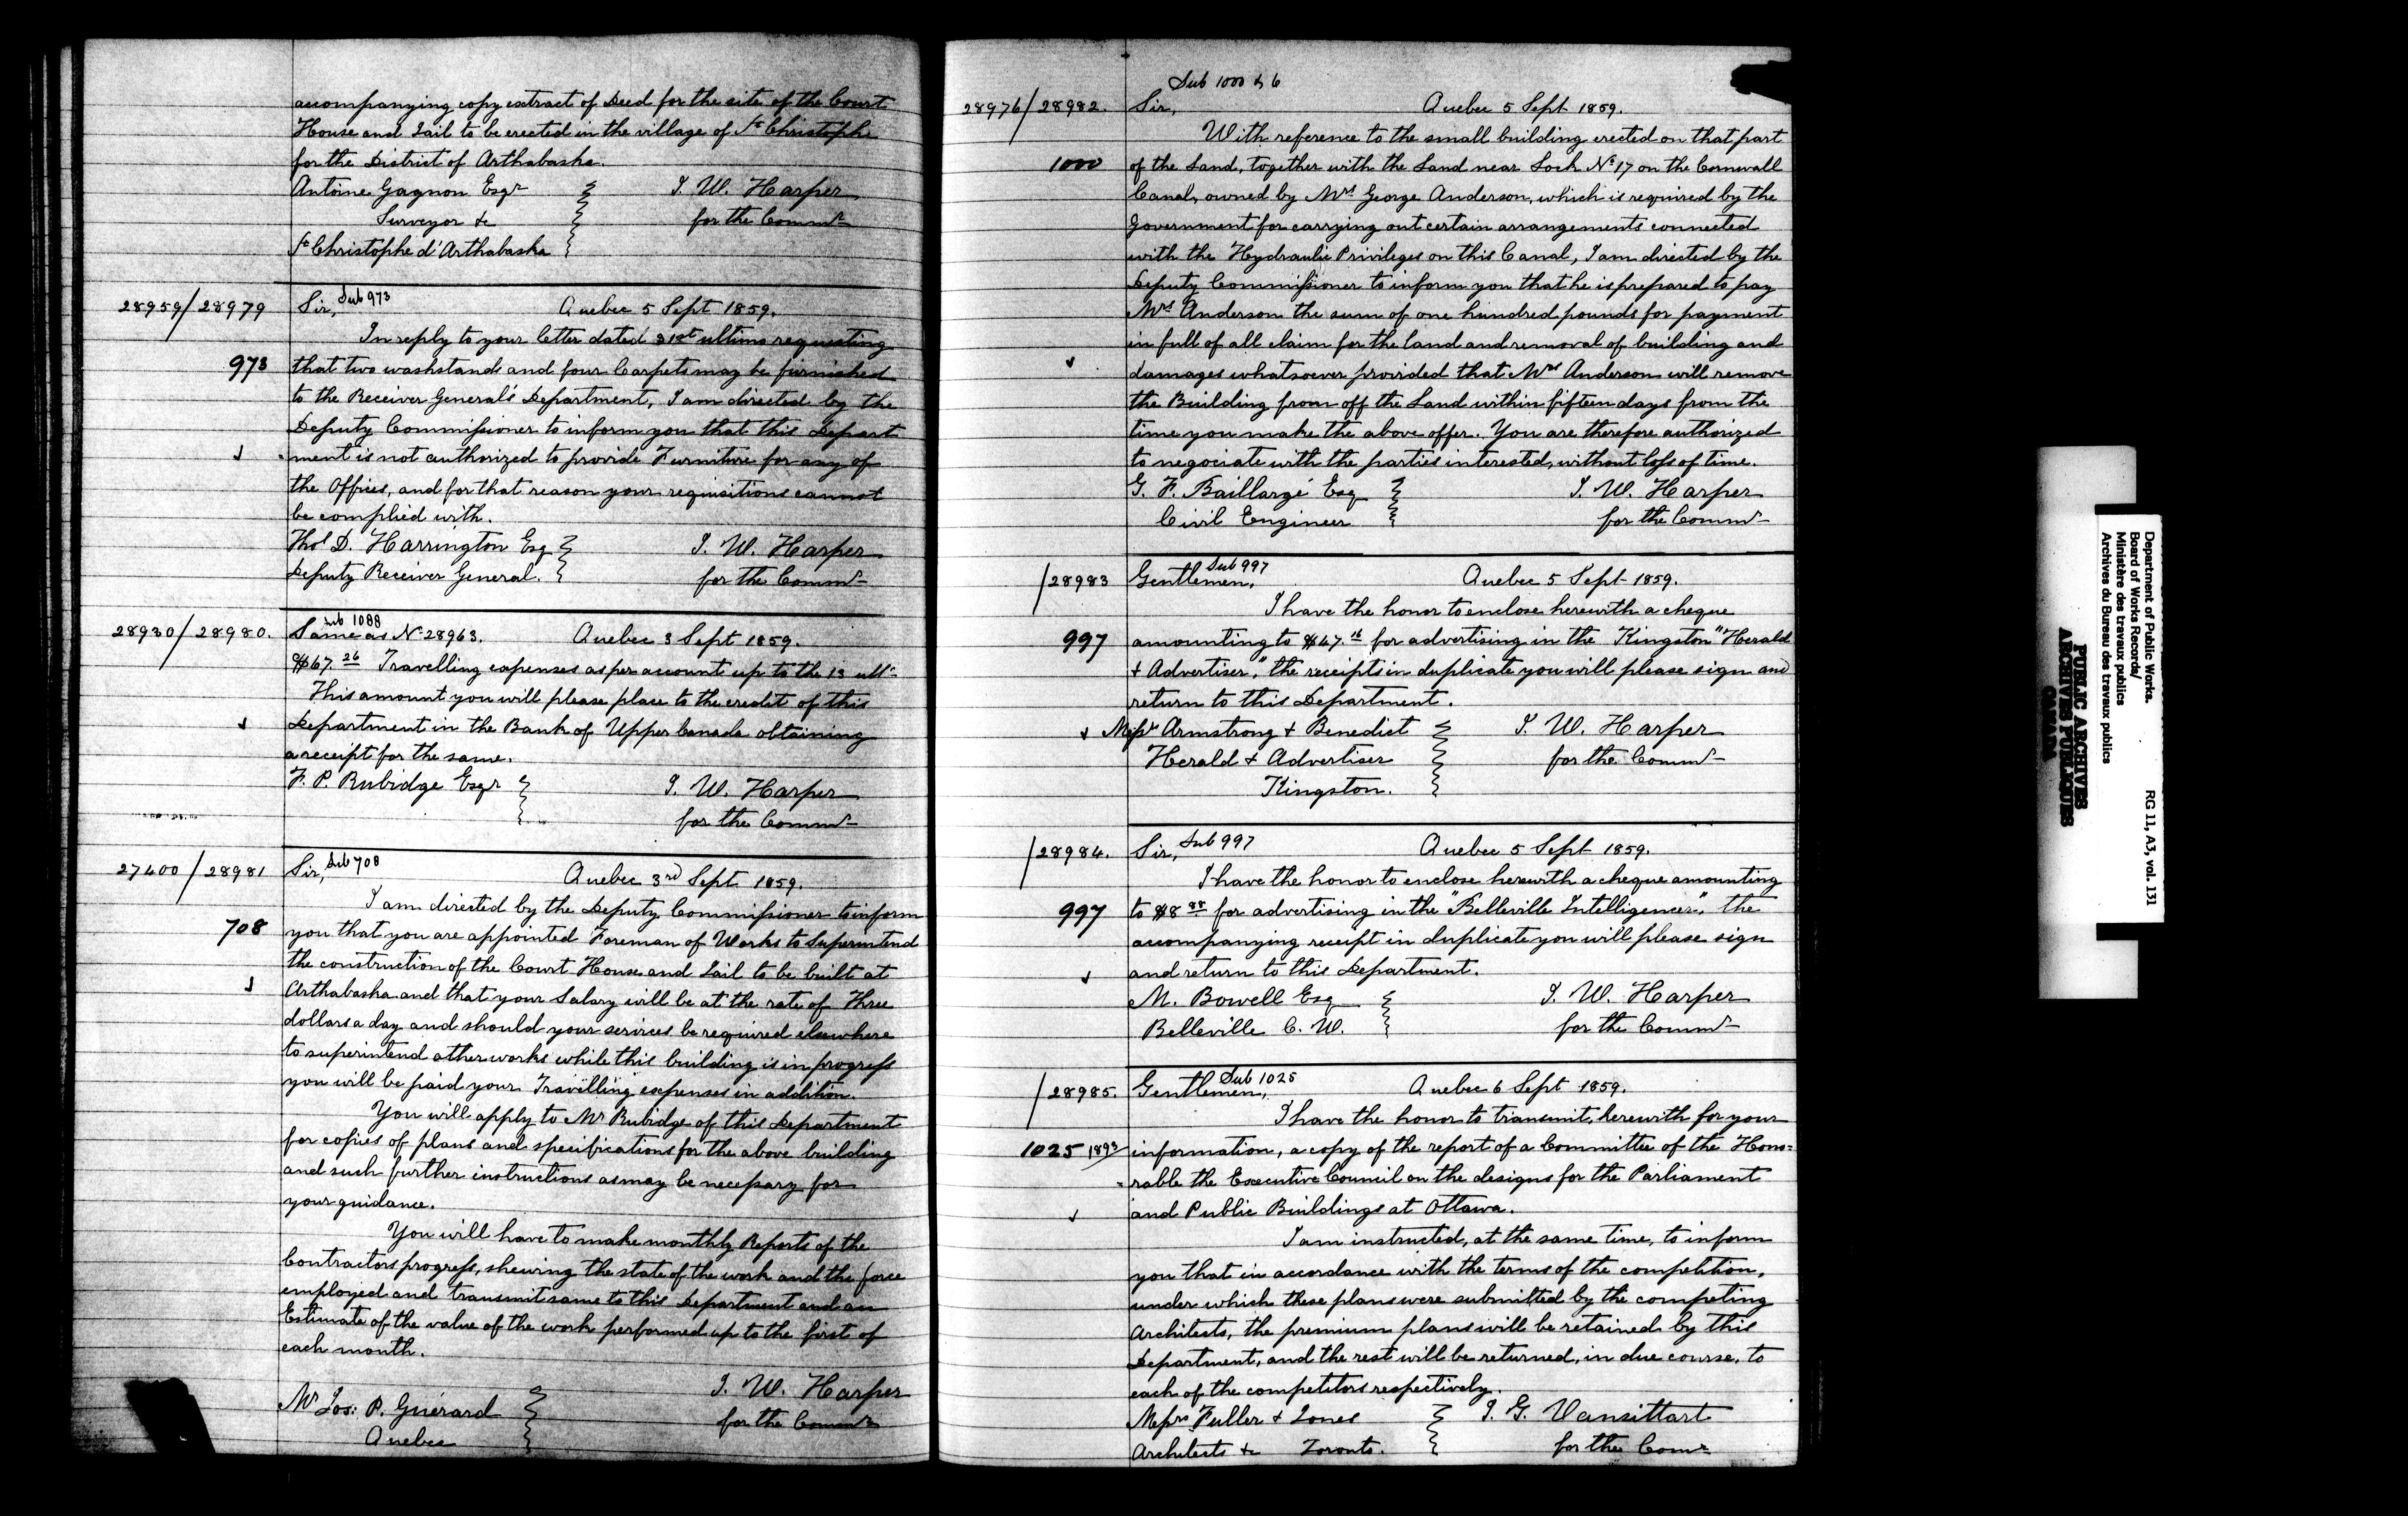 accompanying copy extract of Deed for the site of the Court
House and Jail to be erected in the village of St Christophe
for the District of Arthabaska.
Antoine Gagnon Esqr
Surveyor &c
St Christophe d'Arthabaska
J. W. Harper
for the Commr
28959/28979
Sir, Sub 973
Quebec 5 Sept 1859.
In reply to your letter dated 31st ultimo requesting
973
that two washstands and four Carpets may be furnished
to the Receiver General's Department, I am directed by the
Deputy Commissioner to inform you that this Depart
-ment is not authorized to provide Furniture for any of
the Offices, and for that reason your requisitions cannot
be complied with.
Thos D. Harrington Esq
Deputy Receiver General.
J. W. Harper
for the Commr
Sub 1088
28930/28980.
Same as No 28963.
Quebec 3 Sept 1859.
$67.26 Travelling expenses as per account up to the 13 ulto
This amount you will please place to the credit of this
Department in the Bank of Upper Canada obtaining
a receipt for the same.
F. P. Rubidge Esqr
J. W. Harper
for the Commr
27400/28981
Sir, Sub 708
Quebec 3rd Sept 1859.
I am directed by the Deputy Commissioner to inform
708
you that you are appointed Foreman of Works to Superintend
the construction of the Court House and Jail to be built at
Arthabaska and that your Salary will be at the rate of Three
dollars a day and should your services be required elsewhere
to superintend other works while this building is in progress
you will be paid your Travelling expenses in addition.
You will apply to Mr Rubidge of this Department
for copies of plans and specifications for the above building
and such further instructions as may be necessary for
your guidance.
You will have to make monthly Reports of the
Contractors progress, shewing the state of the work and the force
employed and transmit same to this Department and an
Estimate of the value of the work performed up to the first of
each month.
Mr Jos: P. Guérard
Quebec
J. W. Harper
for the Commr
Sub 1000 & 6
28976/28982.
Sir,
Quebec 5 Sept 1859.
With reference to the small building erected on that part
1000
of the Land, together with the Land near Lock No 17 on the Cornwall
Canal, owned by Mrs George Anderson, which is required by the
Government for carrying out certain arrangements connected
with the Hydraulic Privileges on this Canal, I am directed by the
Deputy Commissioner to inform you that he is prepared to pay
Mrs Anderson the sum of one hundred pounds for payment
in full of all claim for the land and removal of building and
damages whatsoever provided that Mrs Anderson will remove
the Building from off the Land within fifteen days from the
time you make the above offer. You are therefore authorized
to negociate with the parties interested, without loss of time.
G. F. Baillargé Esq
Civil Engineer
J. W. Harper
for the Commr
/28983
Gentlemen, Sub 997
Quebec 5 Sept 1859.
I have the honor to enclose herewith a cheque
997
amounting to $47.16 for advertising in the Kingston "Herald
+ Advertiser," the receipts in duplicate you will please sign and
return to this Department.
Messrs Armstrong + Benedict
Herald + Advertiser
Kingston.
J. W. Harper
for the Commr
/28984.
Sir, Sub 997
Quebec 5 Sept 1859.
I have the honor to enclose herewith a cheque amounting
997
to $8.88 for advertising in the "Belleville Intelligencer," the
accompanying receipt in duplicate you will please sign
and return to this Department.
M. Bowell Esq
Belleville C. W.
J. W. Harper
for the Commr
/28985.
Gentlemen, Sub 1025
Quebec 6 Sept 1859.
I have the honor to transmit, herewith for your
1025 1893
information, a copy of the report of a Committee of the Hono=
=rable the Executive Council on the designs for the Parliament
and Public Buildings at Ottawa.
I am instructed, at the same time, to inform
you that in accordance with the terms of the competition,
under which these plans were submitted by the competing
Architects, the premium plans will be retained by this
Department, and the rest will be returned, in due course, to
each of the competitors respectively.
Messrs Fuller + Jones
Architects &c Toronto.
J. G. Vansittart
for the Comr
Department of Public Works.
Board of Works Records/
Ministère des travaux publics
Archives du Bureau des travaux publics
RG 11, A3, vol. 131
PUBLIC ARCHIVES
ARCHIVES PUBLIQUES
CANADA